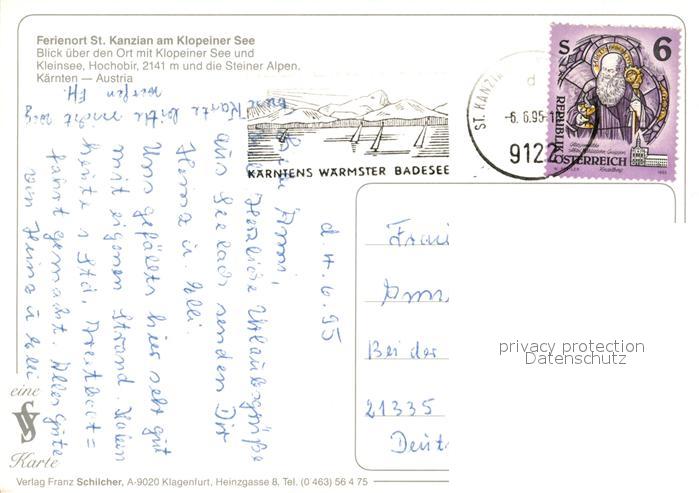 Ferienort St. Kanzian am Klopeiner See
Blick über den Ort mit Klopeiner See und
Kleinsee, Hochobir, 2141 m und die Steiner Alpen,
Kärnten — Austria
KÄRNTENS WÄRMSTER BADESEE
ST. KANZIA
d
-6. 6.95-1
912
S 6
REPUBLIK
ÖSTERREICH
d. 4. 6. 95
Anni,
Herzliche Urlaubsgrüße
aus Seelach senden Dir
Heinz u. Elli.
Uns gefällts hier sehr gut
mit eigenen Strand. Haben
heute 1 Std. Tretboot=
fahrt gemacht. Alles Gute
von Heinz u Elli
diese Karte bitte nicht weg
werfen
Frau
Bei der
21335
Deut
privacy protection
Datenschutz
eine
Karte
Verlag Franz Schilcher, A-9020 Klagenfurt, Heinzgasse 8, Tel. (0 463) 56 4 75